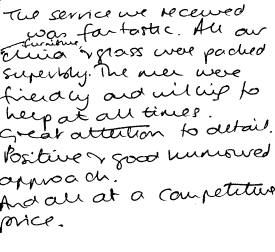 The service we received
was fantastic. All our
furniture,
china & glass were packed
superbly. The men were
friendly and willing to
help at all times.
Great attention to detail.
Positive & good humoured
approach.
And all at a competitive
price.